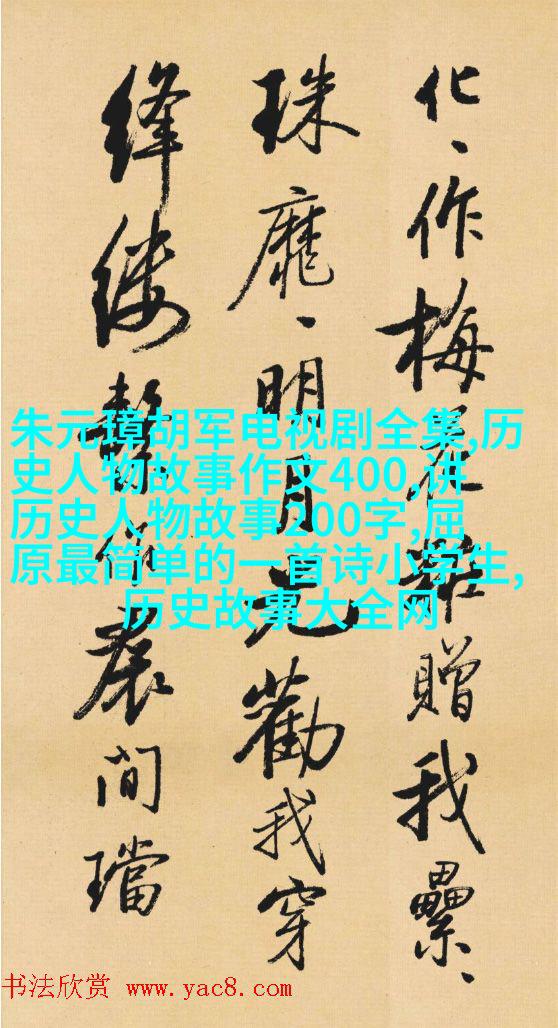 化、作梅贈我纍、
珠靡、明月勸我穿
縫縷間璫
朱元璋胡军电视剧全集,历
史人物故事作文400,讲
历史人物故事200字,屈
原最简单的一首诗小学生,
历史故事大全网
书法欣赏 www.yac8.com